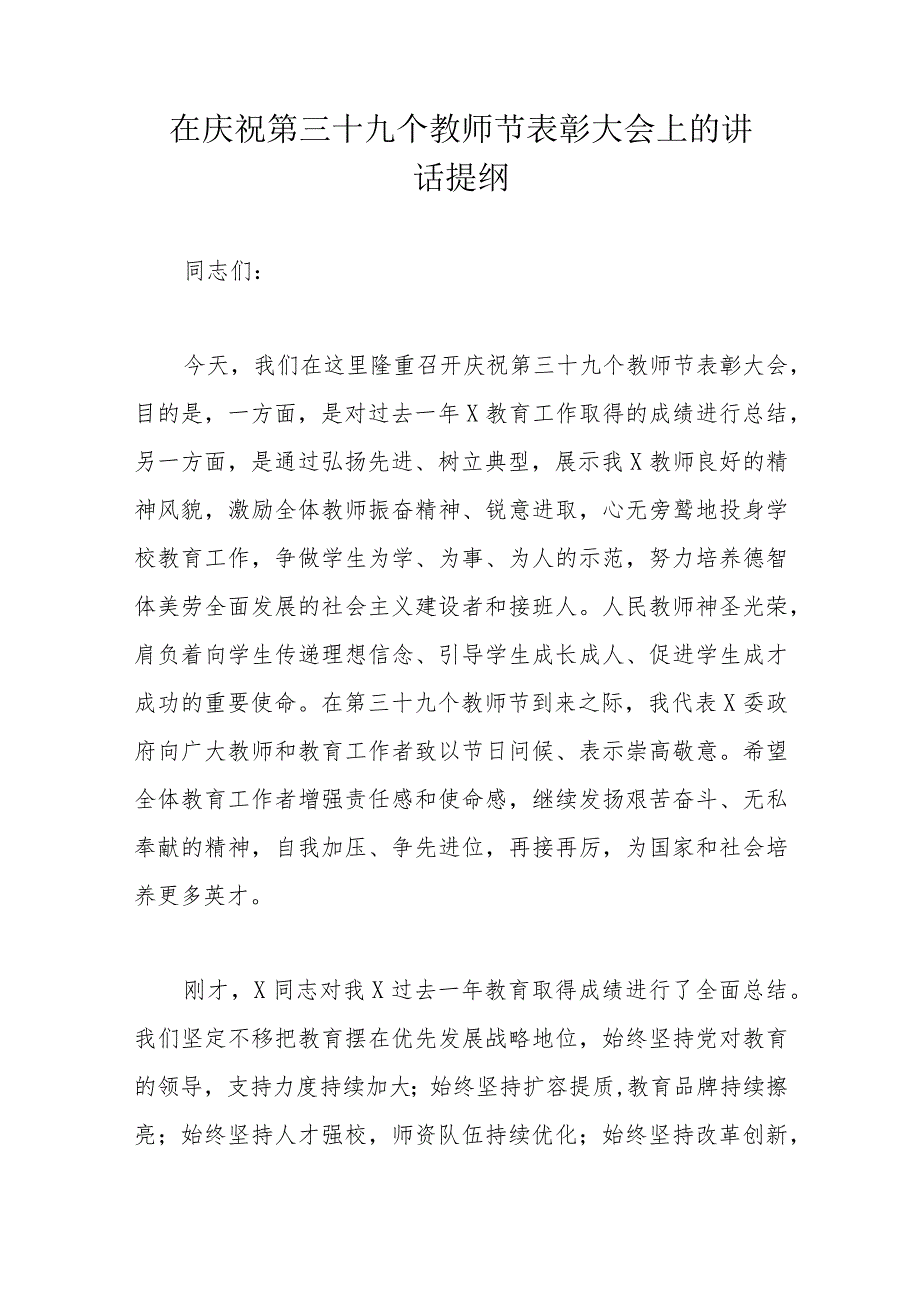 在庆祝第三十九个教师节表彰大会上的讲
话提纲
同志们：
今天，我们在这里隆重召开庆祝第三十九个教师节表彰大会，
目的是，一方面，是对过去一年X教育工作取得的成绩进行总结，
另一方面，是通过弘扬先进、树立典型，展示我X教师良好的精
神风貌，激励全体教师振奋精神、锐意进取，心无旁鹜地投身学
校教育工作，争做学生为学、为事、为人的示范，努力培养德智
体美劳全面发展的社会主义建设者和接班人。人民教师神圣光荣，
肩负着向学生传递理想信念、引导学生成长成人、促进学生成才
成功的重要使命。在第三十九个教师节到来之际，我代表X委政
府向广大教师和教育工作者致以节日问候、表示崇高敬意。希望
全体教育工作者增强责任感和使命感，继续发扬艰苦奋斗、无私
奉献的精神，自我加压、争先进位，再接再厉，为国家和社会培
养更多英才。
刚才，X同志对我X过去一年教育取得成绩进行了全面总结。
我们坚定不移把教育摆在优先发展战略地位，始终坚持党对教育
的领导，支持力度持续加大；始终坚持扩容提质,教育品牌持续擦
亮；始终坚持人才强校，师资队伍持续优化；始终坚持改革创新，